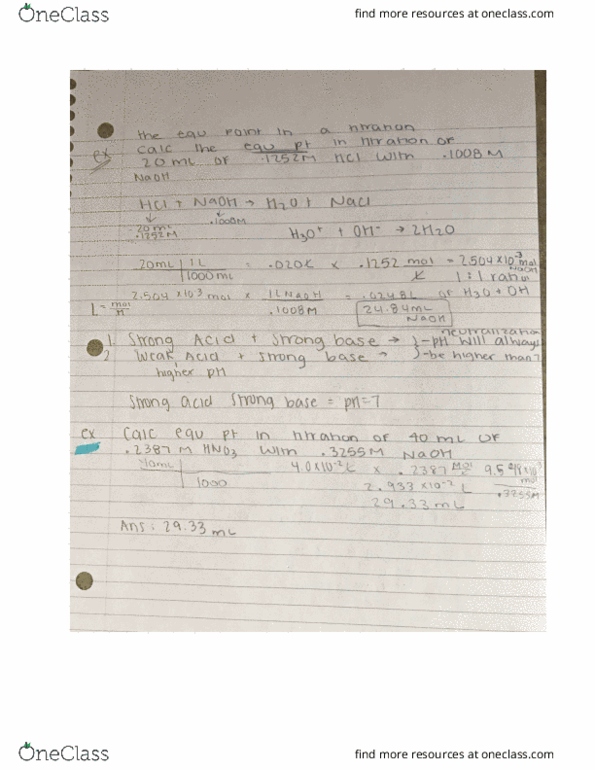 OneClass
find more resources at oneclass.com
the equ point in a titration
ex calc the equ pt in titration of
20 mL of .1252M HCl with .1008 M
NaOH
HCl + NaOH → H2O + NaCl
20 mL
.1252M
.1000M
H3O+ + OH- → 2H2O
20mL | 1L = .020L x .1252 mol = 2.504 x10-3 mol NaOH
1000 mL L 1:1 ratio
of H3O + OH
L = mol/M 2.504 x10-3 mol x 1L NaOH = .0248L
.1008M 24.84mL
NaOH
1. Strong Acid + Strong base → }-pH will always
neutralization
2 Weak Acid + Strong base → }-be higher than 7
higher pH
Strong acid Strong base = pH=7
ex Calc equ pt in titration of 40 mL of
.2387 M HNO3 with .3255M NaOH
40mL 4.0x10-2 L x .2387 mol
1000 2.933 x10-2 L .3255M
29.33 mL
Ans: 29.33 mL
OneClass
find more resources at oneclass.com